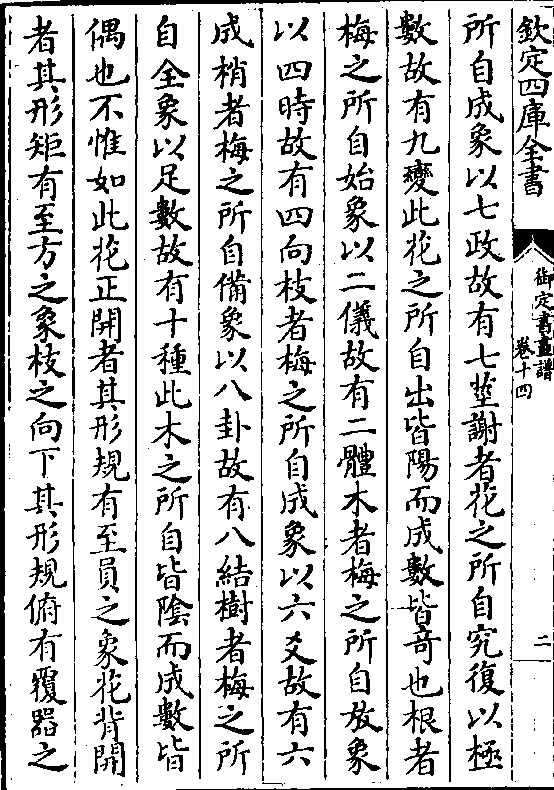 欽定四庫全書
御定書畫譜
卷十四
二
所自成象以七政故有七莖謝者花之所自究復以極
數故有九變此花之所自出皆陽而成數皆奇也根者
梅之所自始象以二儀故有二體木者梅之所自放象
以四時故有四向枝者梅之所自成象以六爻故有六
成梢者梅之所自備象以八卦故有八結樹者梅之所
自全象以足數故有十種此木之所自皆陰而成數皆
偶也不惟如此花正開者其形規有至員之象花背開
者其形矩有至方之象枝之向下其形規俯有覆器之